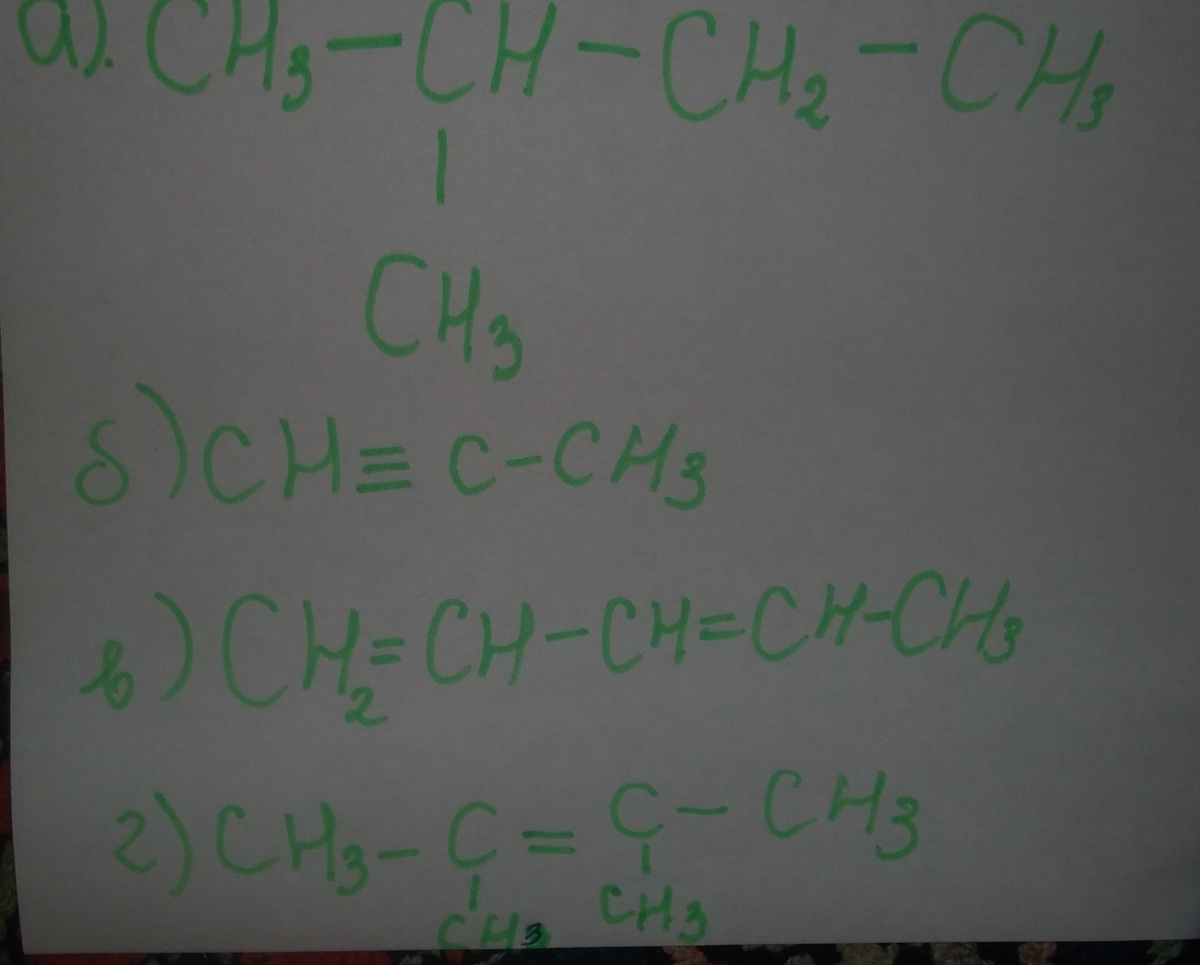 а). CH3 – CH – CH2 – CH3
|
CH3
б) CH ≡ C – CH3
в) CH2 = CH – CH = CH – CH3
г) CH3 – C = C – CH3
| |
CH3 CH3